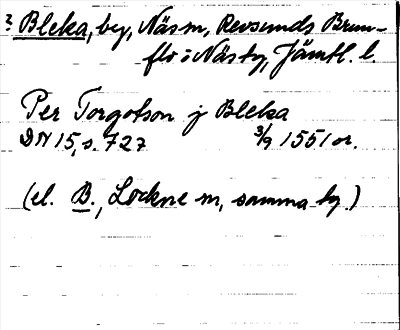 ? Bleka, by, Näs m, Revsunds Brun-
flo o Näs tg, Jämtl. l.
Per Torgotson j Bleka
DN 15, s. 727 3/9 1551 or.
(el. B., Lockne m, samma tg.)